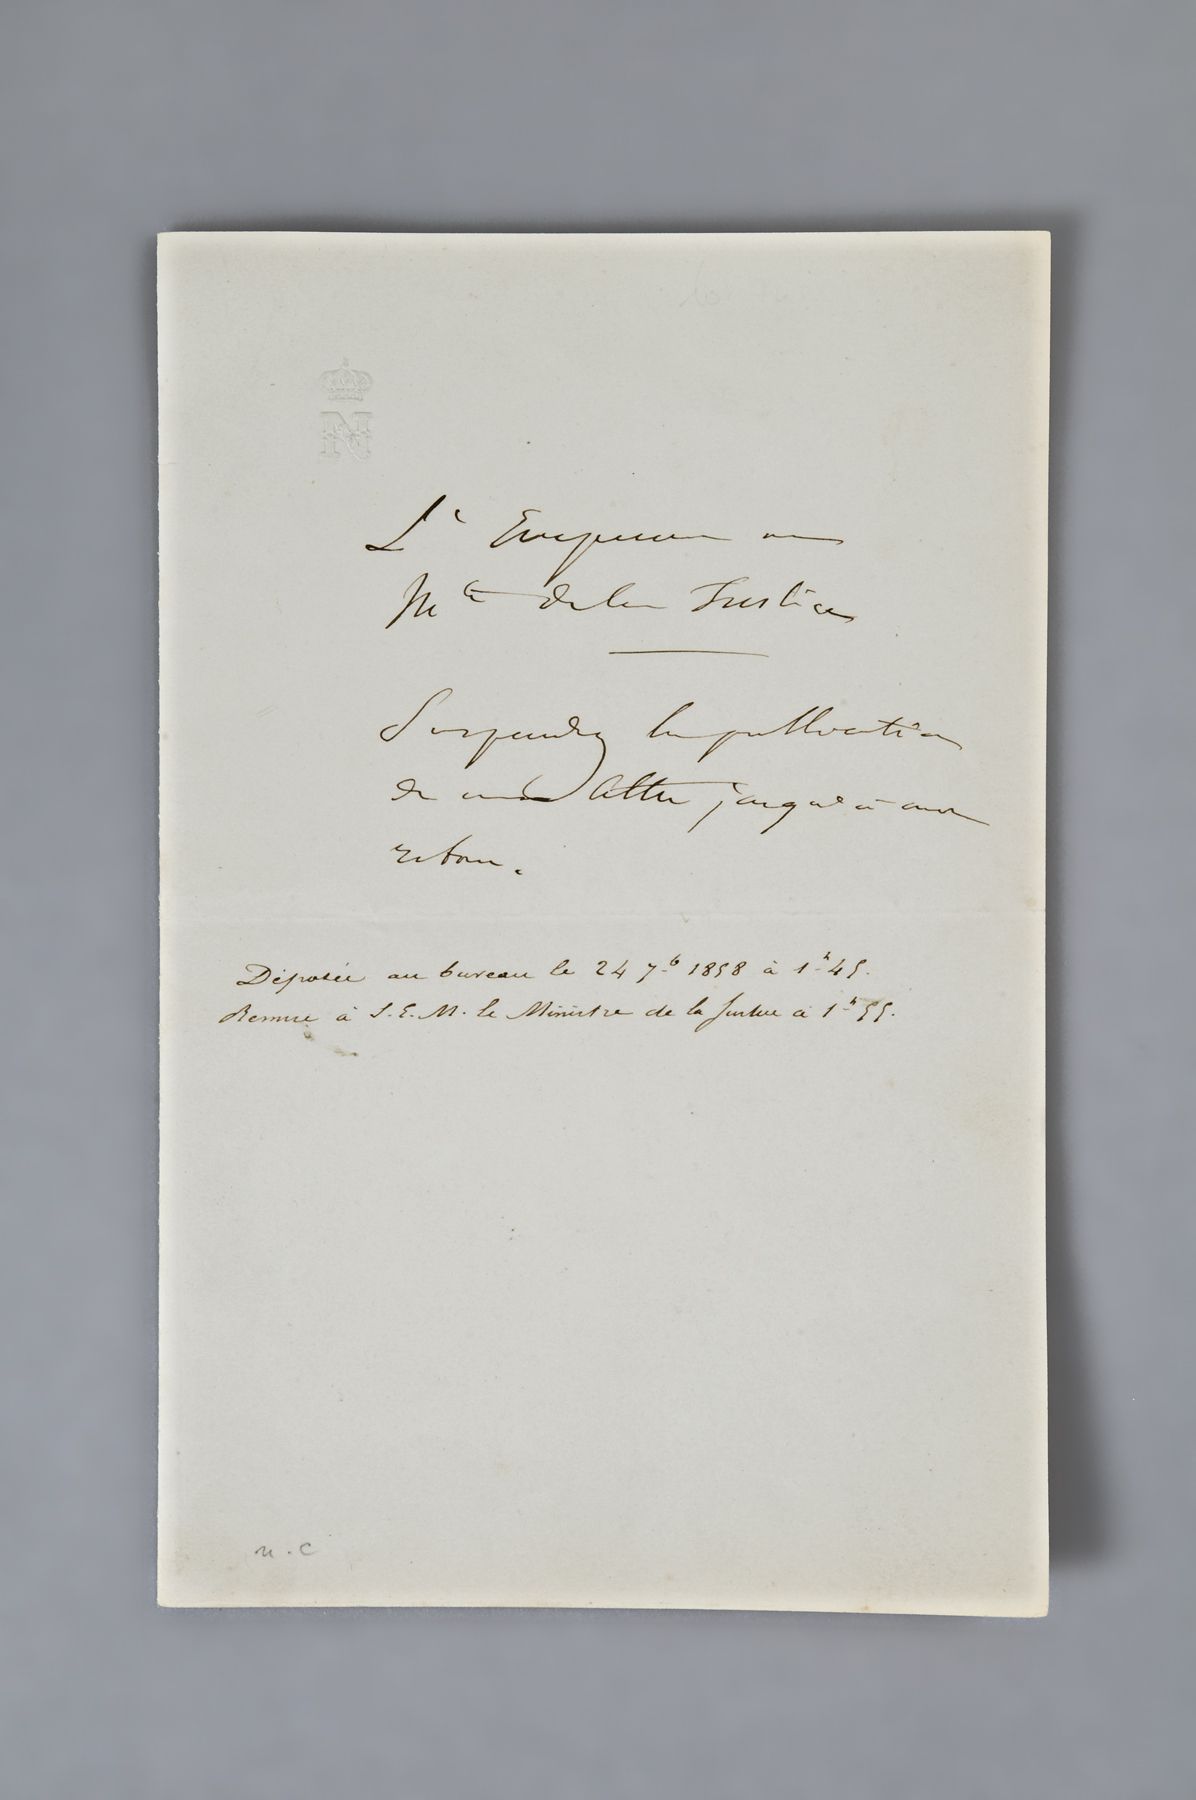 N
L'Empereur au
Mtre de la Justice
Suspendez la publication
de ma lettre jusqu'à mon
retour.
Déposée au bureau le 24 7.b 1858 à 1h 45.
Remise à S.E.M. le Ministre de la Justice à 1h 55.
n.c